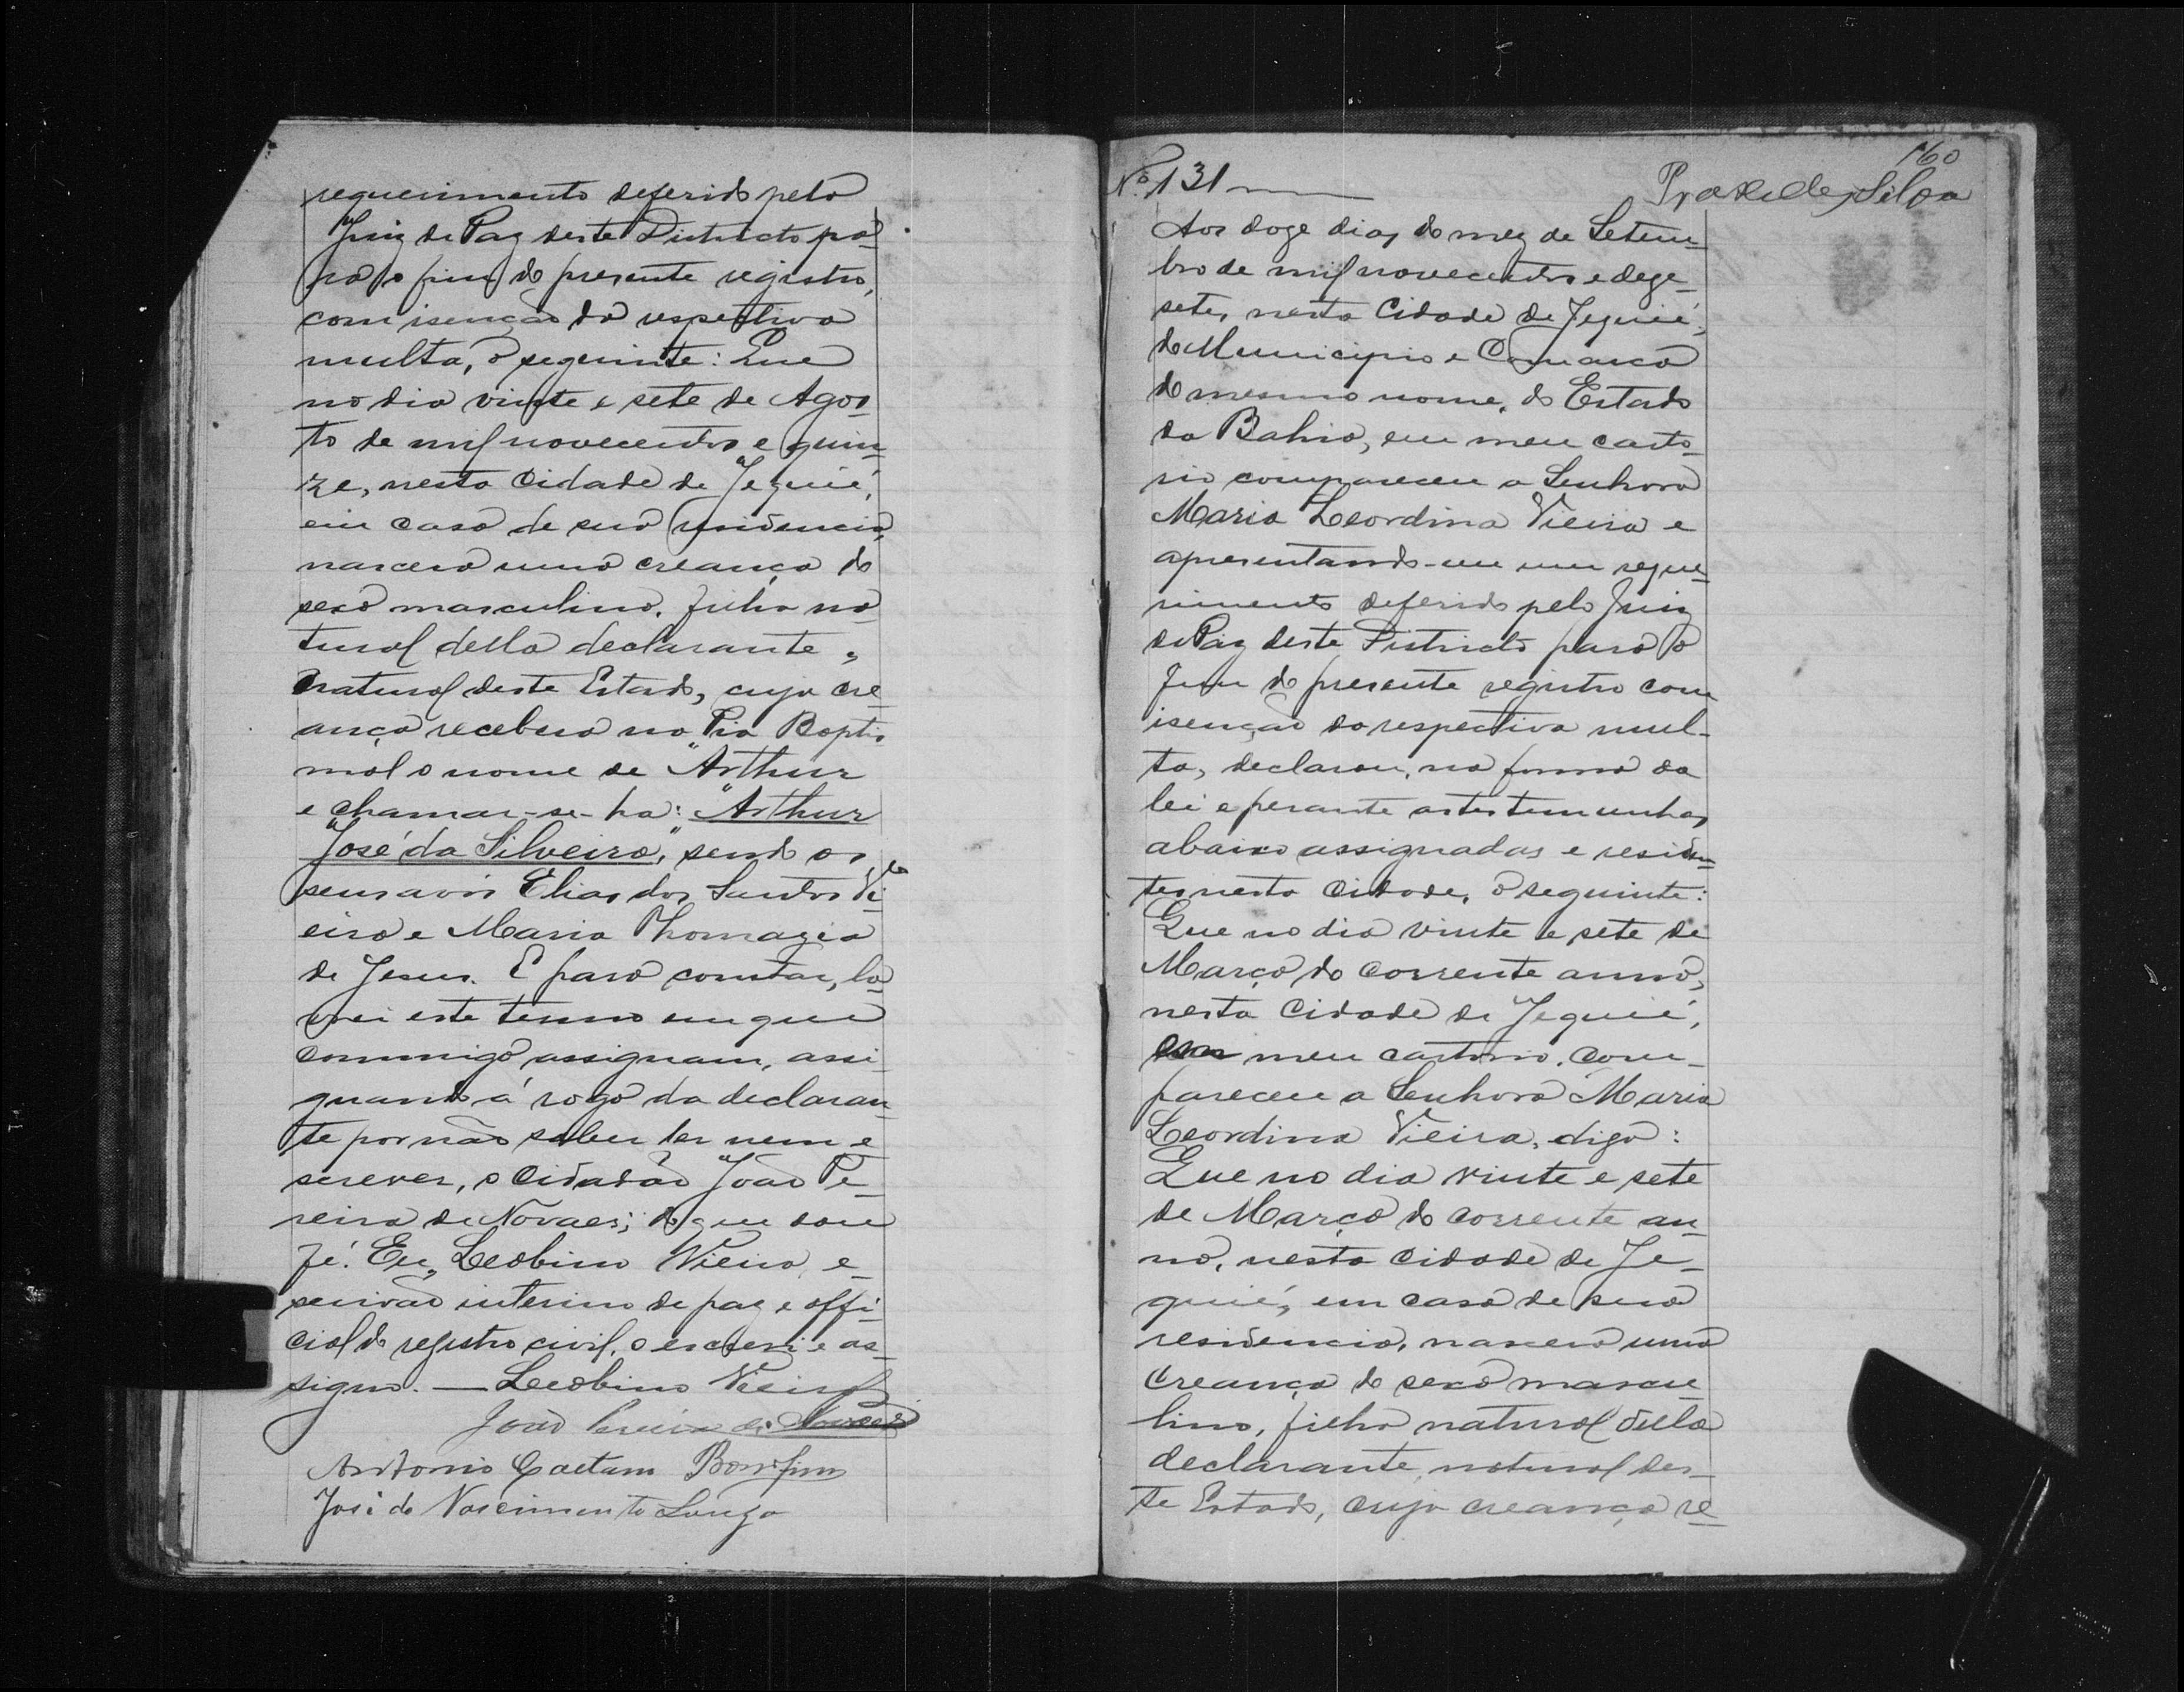 requerimento deferido pelo
Juiz de Paz deste Districto pa-
ra o fim do presente registro,
com isenção da respectiva
multa, o seguinte: Que
no dia vinte e sete de Agos-
to de mil novecentos e quin-
ze, nesta Cidade de Jequié,
em casa de sua residencia,
nascera uma creança do
sexo masculino, filho na-
tural della declarante,
natural deste Estado, cuja cre-
ança recebera na Pia Baptis-
mal o nome de "Arthur
e chamar-se-ha: "Arthur
José da Silveira", sendo os
seus avós Elias dos Santos Vi-
eira e Maria Thomazia
de Jesus. E para constar, la-
vrei este termo em que
commigo assignam, assi-
gnando á rogo da declaran-
te por não saber ler nem e-
screver, o Cidadão João Pe-
reira de Novaes; do que dou
fé. Eu, Leobino Vieira, e-
scrivão interino de paz e offi-
cial do registro civil, o escrevi e as-
signo. — Leobino Vieira
João Pereira de Novaes
Antonio Caetano Bomfim
José do Nascimento Longo
160
Nº 131
Praxedes Silva
Aos doze dias do mez de Setem-
bro de mil novecentos e deze-
sete, nesta Cidade de Jequié,
do Municipio e Comarca
do mesmo nome, do Estado
da Bahia, em meu carto-
rio compareceu a Senhora
Maria Leordina Vieira e
apresentando-me um reque-
rimento deferido pelo Juiz
de Paz deste Districto para o
fim do presente registro com
isenção da respectiva mul-
ta, declarou, na forma da
lei e perante as testemunhas
abaixo assignadas e residen-
tes nesta Cidade, o seguinte:
Que no dia vinte e sete de
Março do corrente anno,
nesta Cidade de Jequié,
em meu cartorio, com-
pareceu a Senhora Maria
Leordina Vieira, digo:
Que no dia vinte e sete
de Março do corrente an-
no, nesta Cidade de Je-
quié, em casa de sua
residencia, nascera uma
creança do sexo mascu-
lino, filho natural della
declarante, natural des-
te Estado, cuja creança re-